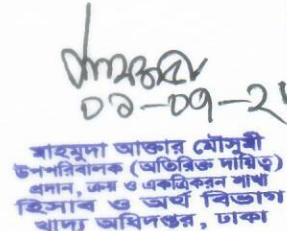 ০১-০৭-২
মাহমুদা আক্তার মৌসুমী
উপপরিচালক (অতিরিক্ত দায়িত্ব)
প্রদান, ক্রয় ও একত্রিকরন শাখা
হিসাব ও অর্থ বিভাগ
খাদ্য অধিদপ্তর, ঢাকা